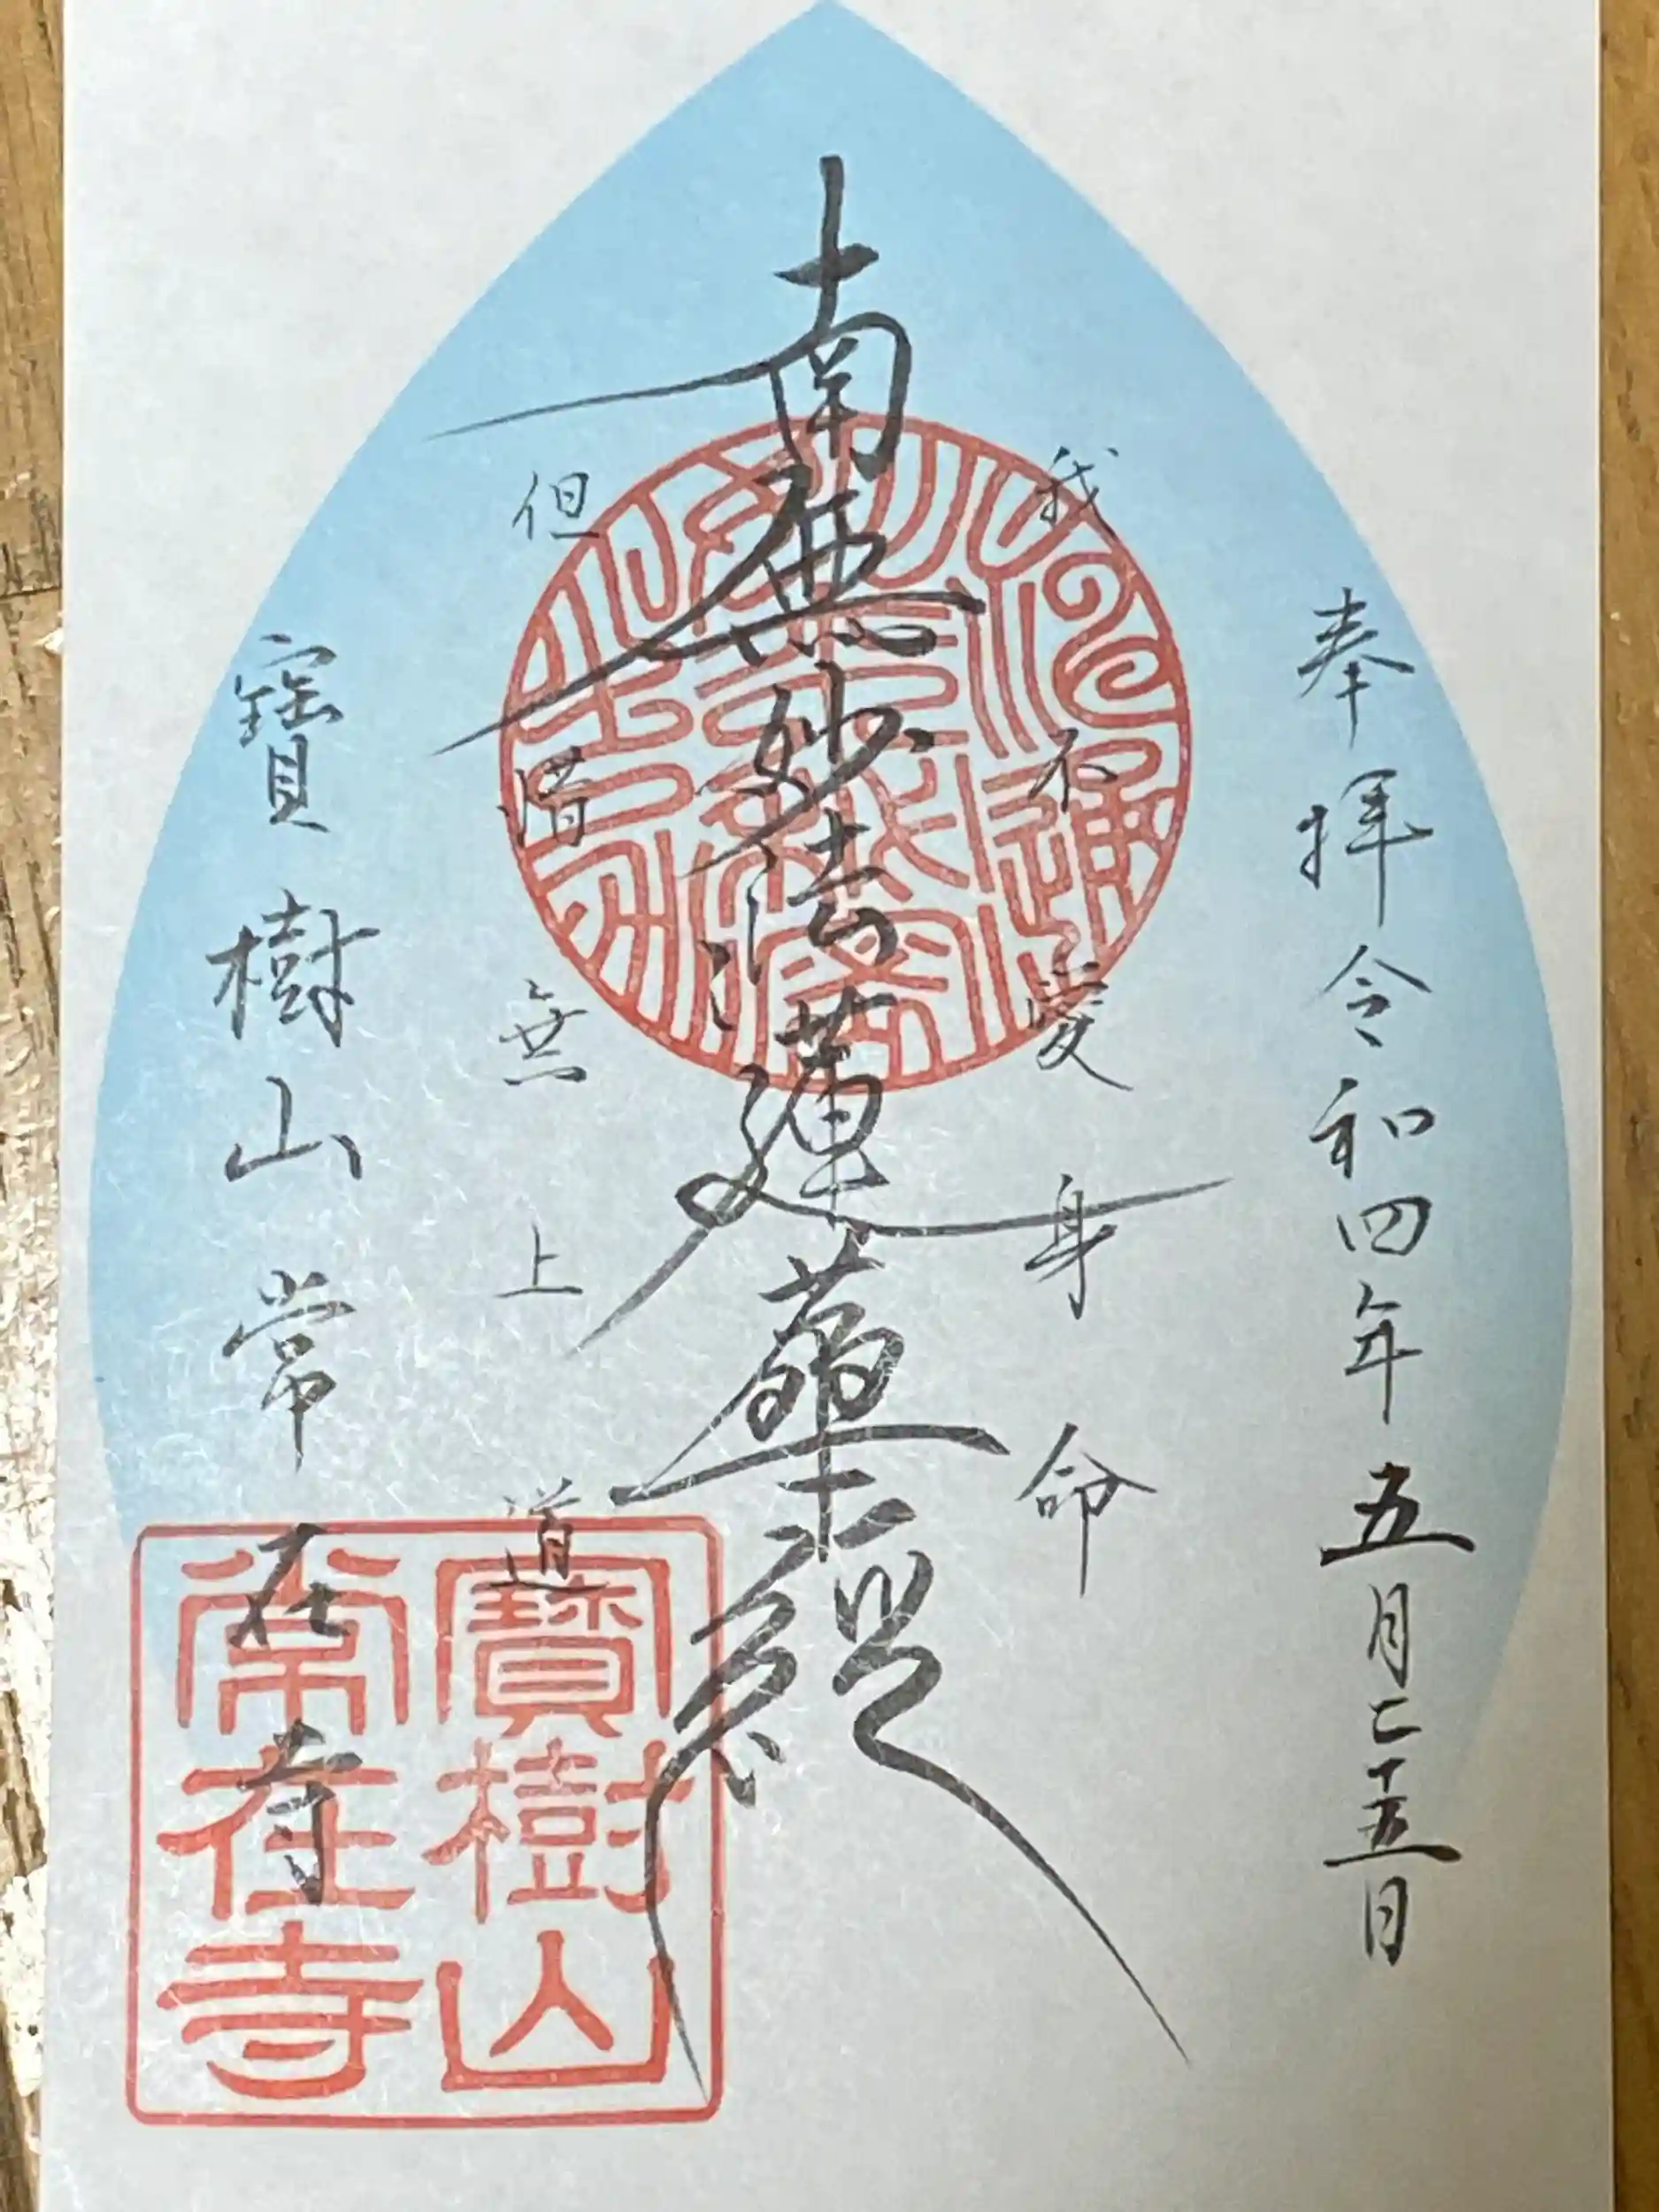 奉拝令和四年五月二十五日
我不愛身命
南無妙法蓮華経
但惜無上道
寶樹山常在寺
寶樹山
常在寺